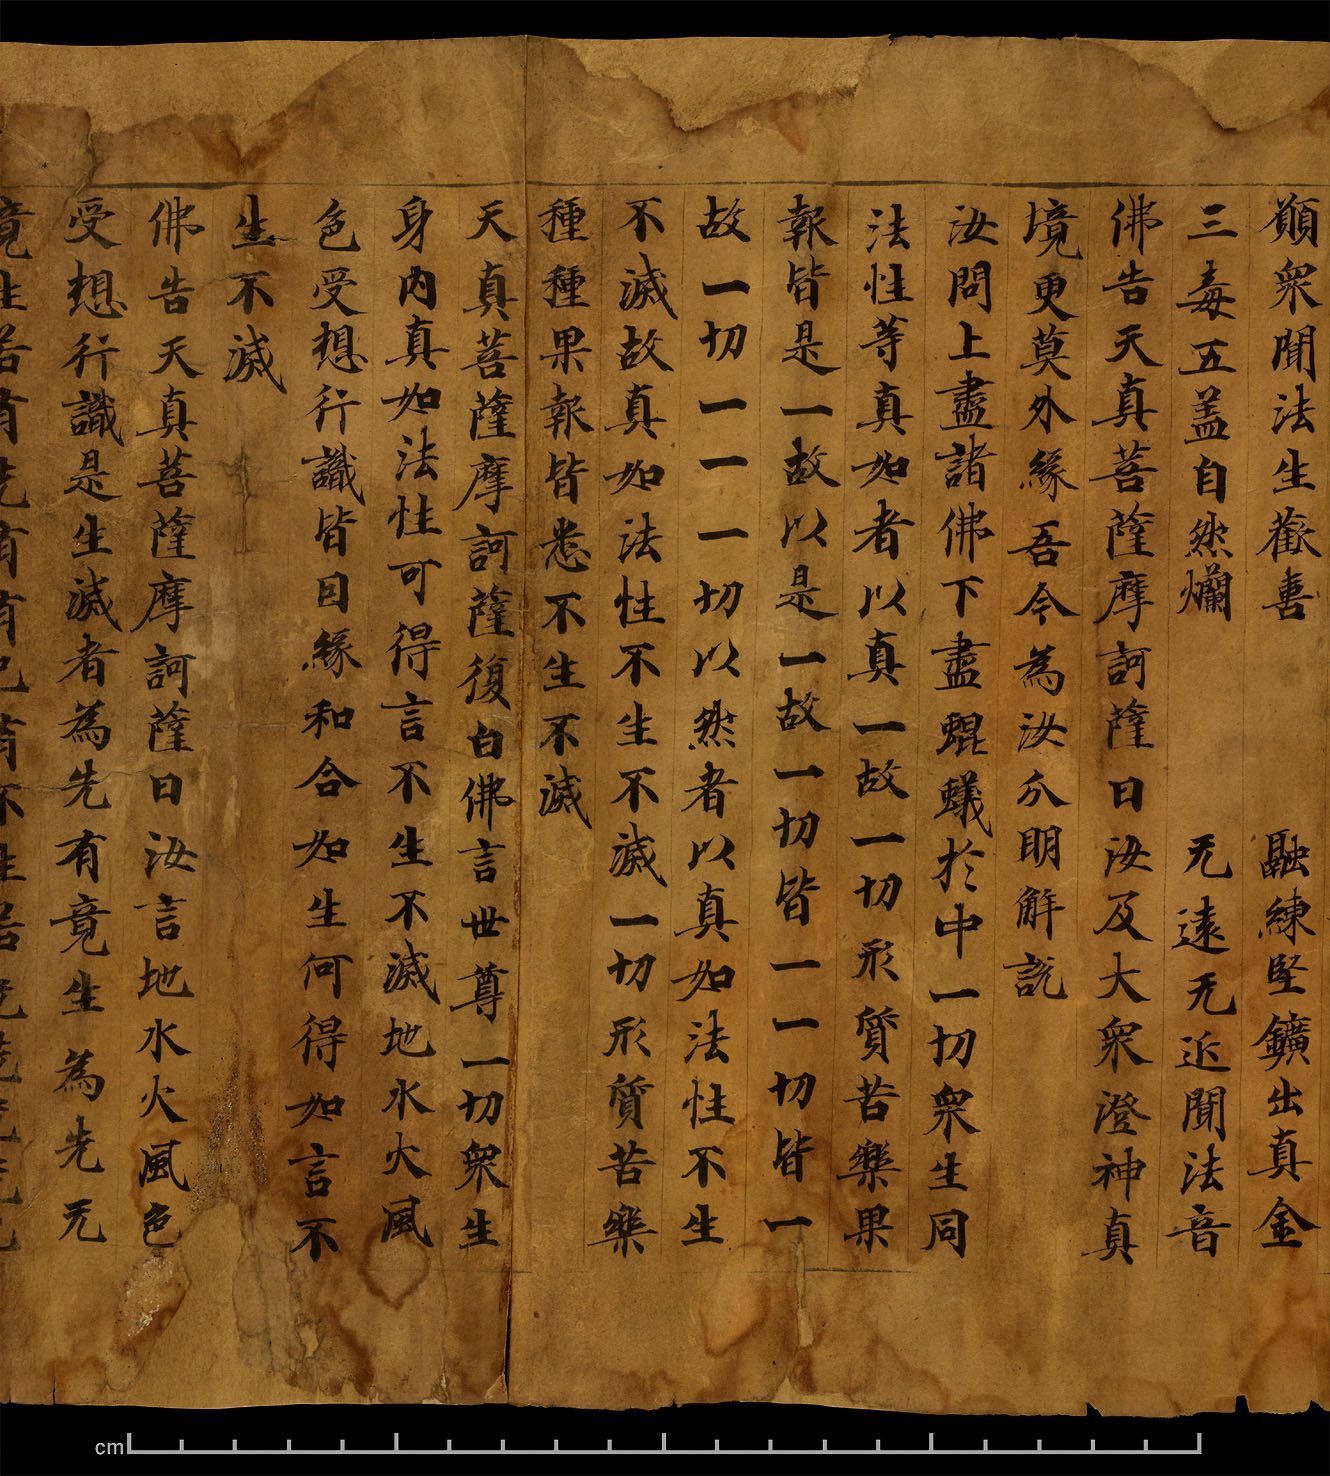 願衆聞法生歡喜 融練堅鑛出真金
三毒五盖自然爛 无遠无近聞法音
佛告天真菩薩摩訶薩曰汝及大衆澄神真
境更莫外緣吾今為汝分明解說
汝問上盡諸佛下盡蜫蟻於中一切衆生同
法性等真如者以真一故一切形質苦樂果
報皆是一故以是一故一切皆一一切皆一
故一切一一一切以然者以真如法性不生
不滅故真如法性不生不滅一切形質苦樂
種種果報皆悉不生不滅
天真菩薩摩訶薩復白佛言世尊一切衆生
身內真如法性可得言不生不滅地水火風
色受想行識皆因緣和合如生何得如言不
生不滅
佛告天真菩薩摩訶薩曰汝言地水火風色
受想行識是生滅者為先有竟生為先无
竟生若